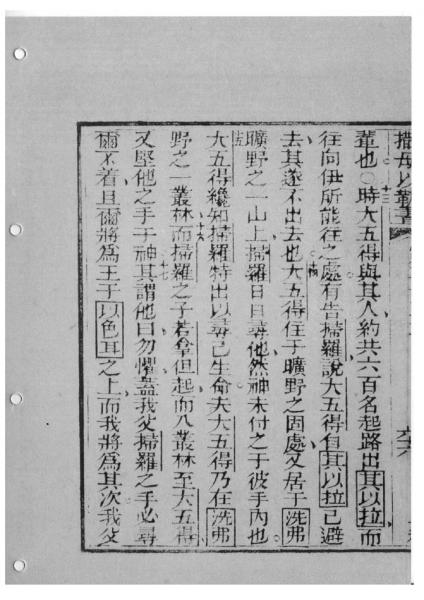 撒母以勒書
輩也○十三時大五得與其人約共六百名起路出其以拉而
往向伊所能往之處有告掃羅說大五得自其以拉已避
去其遂不出去也十四大五得住于曠野之固處又居于洗弗
曠野之一山上掃羅日日尋他然神未付之于彼手內也
十五大五得纔知掃羅特出以尋己生命夫大五得乃在洗弗
野之一叢林十六而掃羅之子若拿但起而入叢林至大五得
又堅他之手于神十七其謂他曰勿懼蓋我父掃羅之手必尋
爾不着且爾將爲王于以色耳之上而我將爲其次我父